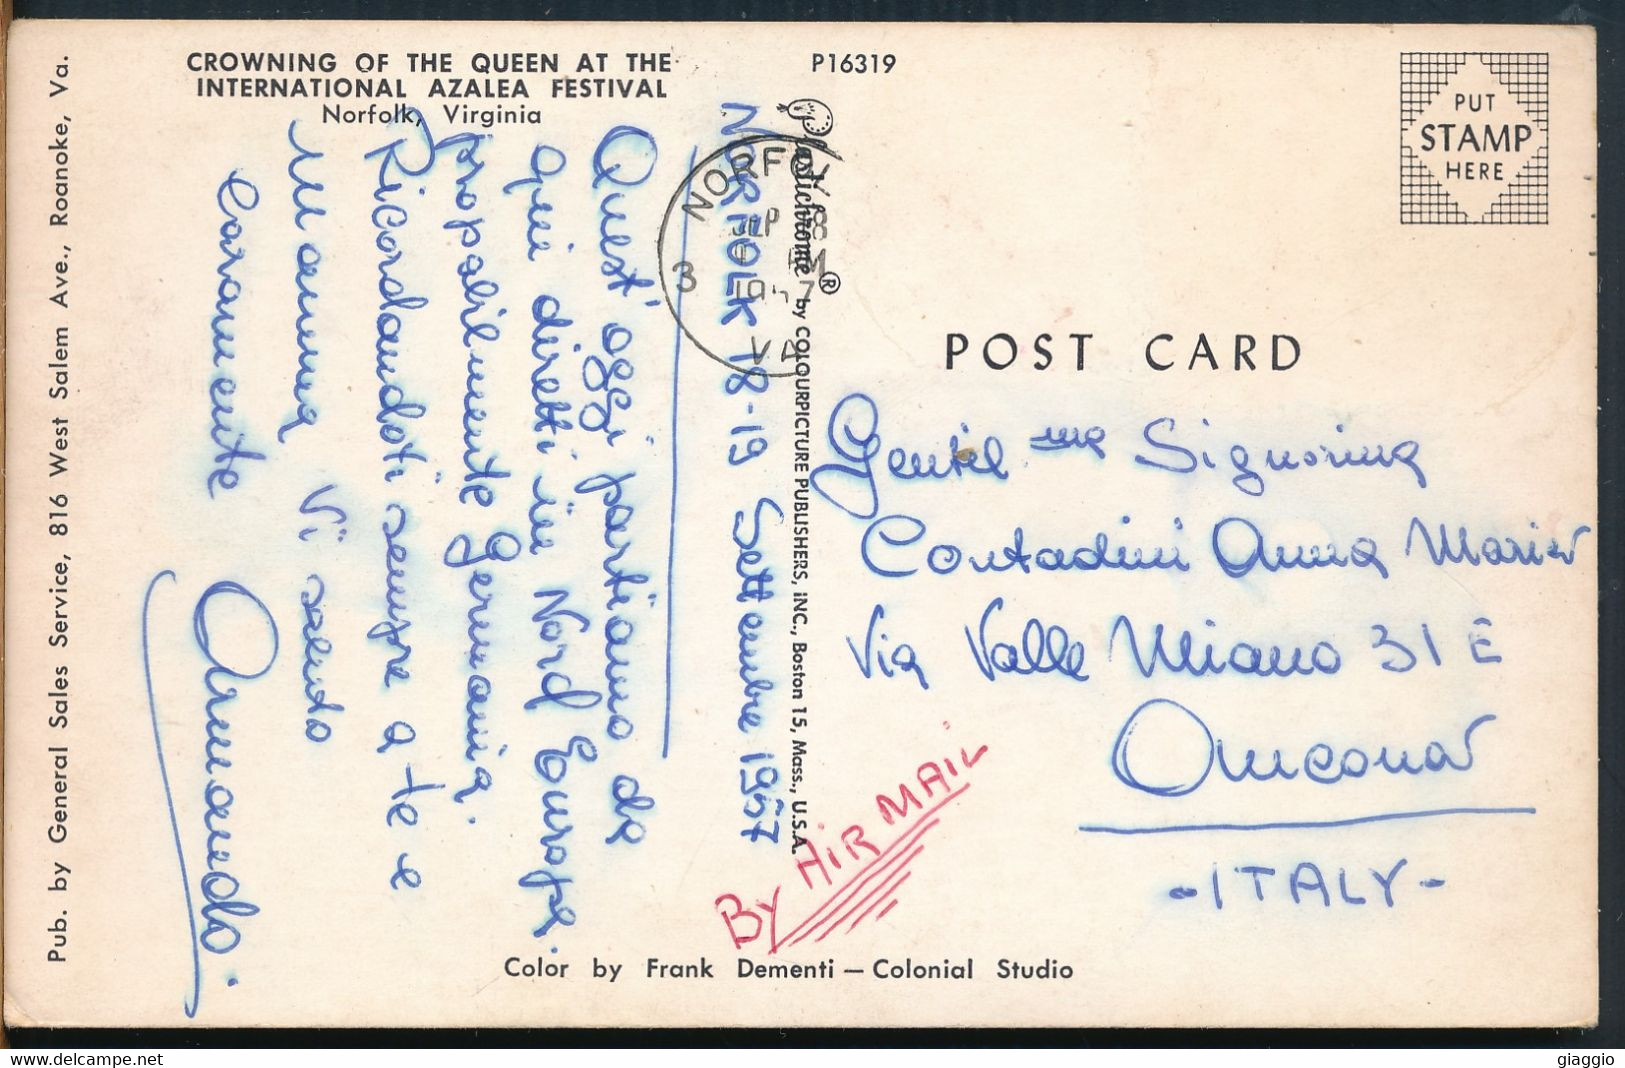 CROWNING OF THE QUEEN AT THE
INTERNATIONAL AZALEA FESTIVAL
Norfolk, Virginia
P16319
PUT
STAMP
HERE
POST CARD
NORFOLK 18-19 Settembre 1957
Quest'oggi partiamo da
qui diretti in Nord Europa.
propabilmente Germania.
Ricordandoti sempre a te e
Mamma Vi saluto
Caramente
Armando.
NORFOLK
SEP 18
PM
1957
3
VA
Plastichrome® by COLOURPICTURE PUBLISHERS, INC., Boston 15, Mass., U.S.A.
Gentil.ma Signorina
Contadini Anna Maria
Via Valle Miano 31 E
Ancona
-ITALY-
By AIR MAIL
Color by Frank Dementi — Colonial Studio
Pub. by General Sales Service, 816 West Salem Ave., Roanoke, Va.
delcampe.net
giaggio